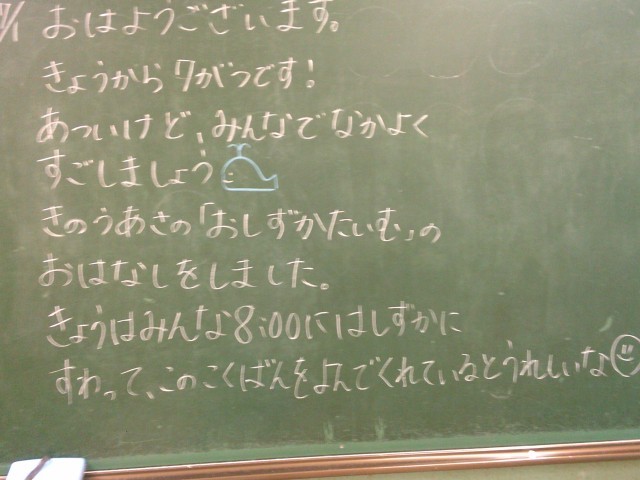 7/1 おはようございます。
きょうから7がつです!
あついけど、みんなでなかよく
すごしましょう
きのうあさの「おしずかたいむ」の
おはなしをしました。
きょうはみんな8:00にはしずかに
すわって、このこくばんをよんでくれているとうれしいな